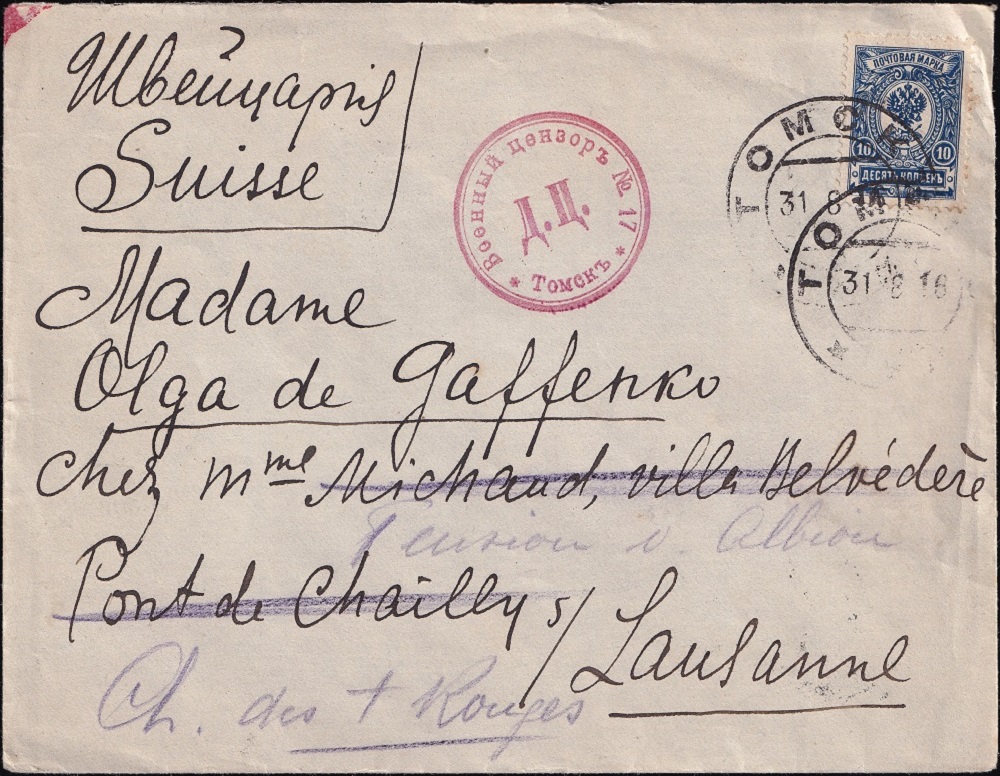 Швейцарія
Suisse
Madame
Olga de Gaffenko
chez Mme Michaud, villa Belvédère
Pension v. Albion
Pont de Chailly s/ Lausanne
Ch. des † Rouges
Военный цензоръ № 17
Д.Ц.
* Томскъ *
ПОЧТОВАЯ МАРКА
10 10
ДЕСЯТЬ КОПѢЕКЪ
ТОМСК
31 8 16
ТОМ
31 8 16